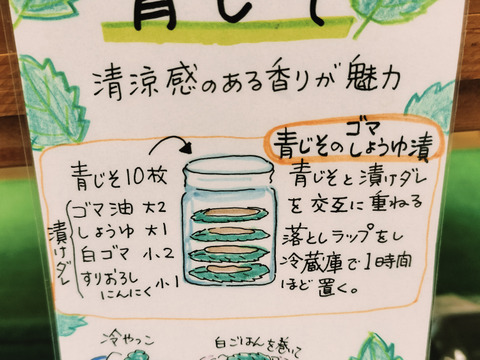 青じそ
清涼感のある香りが魅力
青じそのゴマしょうゆ漬
青じそ10枚
漬けダレ
ゴマ油 大2
しょうゆ 大1
白ゴマ 小2
すりおろし
にんにく 小1
青じそと漬けダレ
を交互に重ねる
落としラップをし
冷蔵庫で1時間
ほど置く。
冷やっこ
白ごはんを巻いて